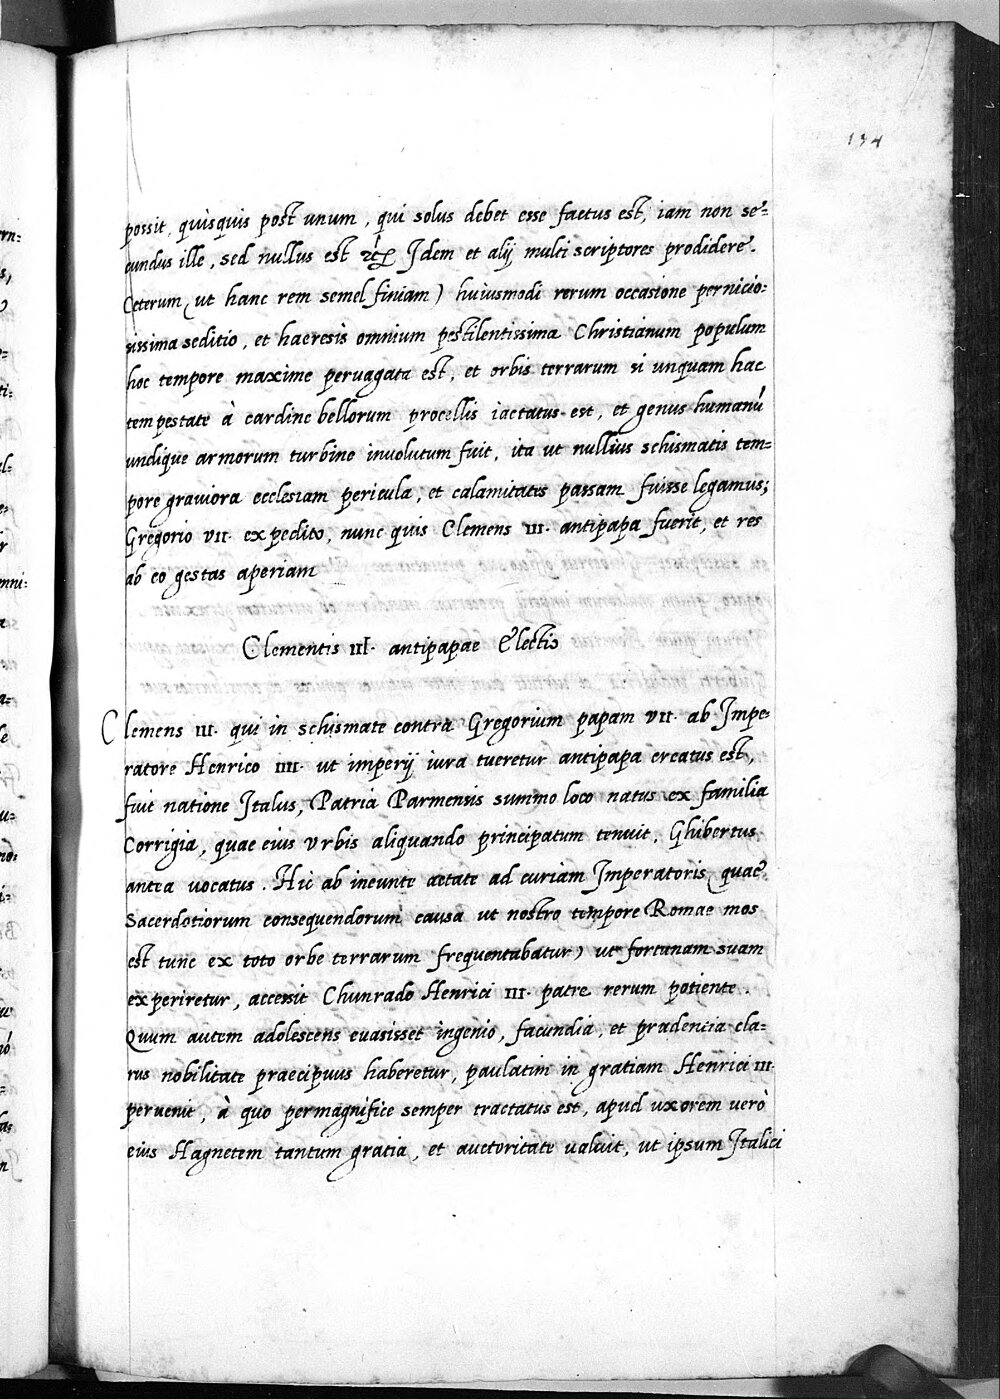 134
possit, quisquis post unum, qui solus debet esse factus est, iam non se=
cundus ille, sed nullus est Idem et alij multi scriptores prodidere.
Ceterum (ut hanc rem semel finiam) huiusmodi rerum occasione pernicio=
sissima seditio, et haeresis omnium pestilentissima Christianum populum
hoc tempore maxime peruagata est, et orbis terrarum si unquam hac
tempestate à cardine bellorum procellis iactatus est, et genus humanū
undique armorum turbine inuolutum fuit, ita ut nullius schismatis tem=
pore grauiora ecclesiam pericula, et calamitates passam fuisse legamus;
Gregorio VII. expedito, nunc quis Clemens III. antipapa fuerit, et res
ab eo gestas aperiam
Clementis III. antipapae Electio
Clemens III. qui in schismate contra Gregorium papam VII. ab Impe=
ratore Henrico IIII. ut imperij iura tueretur antipapa creatus est,
fuit natione Italus, Patria Parmensis summo loco natus ex familia
Corrigia, quae eius Vrbis aliquando principatum tenuit, Ghibertus
antea uocatus. Hic ab ineunte aetate ad curiam Imperatoris (quae
Sacerdotiorum consequendorum causa ut nostro tempore Romae mos
est tunc ex toto orbe terrarum frequentabatur) ut fortunam suam
experiretur, accessit Chunrado Henrici III. patre rerum potiente.
Quum autem adolescens euasisset ingenio, facundia, et prudentia cla=
rus nobilitate praecipuus haberetur, paulatim in gratiam Henrici III.
peruenit, à quo permagnifice semper tractatus est, apud uxorem uerò
eius Hagnetem tantum gratia, et auctoritate ualuit, ut ipsum Italici